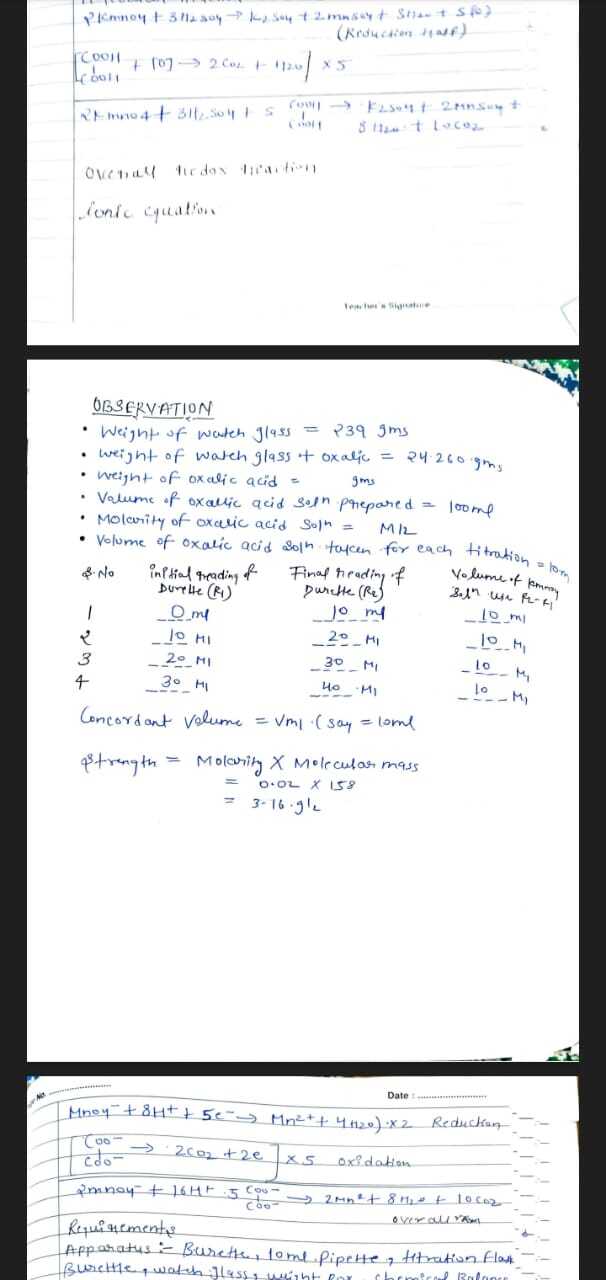 2Kmno4 + 3H2so4 → K2so4 + 2mnso4 + 3H2o + 5[o]
(Reduction Half)
[COOH
COOH + [O] → 2CO2 + H2O] × 5
2Kmno4 + 3H2so4 + 5 COOH
COOH → K2so4 + 2Mnso4 +
8H2o + 10CO2
Overall redox reaction
Ionic equation
Teacher's Signature
OBSERVATION
• Weight of watch glass = 239 gms
• weight of watch glass + oxalic = 24.260 gms
• weight of oxalic acid = gms
• Volume of oxalic acid soln prepared = 100ml
• Molarity of oxalic acid soln = M/2
• Volume of oxalic acid soln taken for each titration = 10m
S.No initial reading of Burette (R1) Final reading of Burette (R2) Volume of kmnoy Soln use R2-R1
1 0 ml 10 ml 10 ml
2 10 Ml 20 Ml 10 Ml
3 20 Ml 30 Ml 10 Ml
4 30 Ml 40 Ml 10 Ml
Concordant volume = Vml (say = 10ml
Strength = Molarity X Molecular mass
= 0.02 X 158
= 3.16 g/L
No. Date :
Mnoy- + 8H+ + 5e- → Mn2+ + 4H2O) × 2 Reduction
[Coo-
Coo- → 2CO2 + 2e] × 5 oxidation
2mnoy- + 16H+ .5 Coo-
Coo- → 2Mn2+ + 8H2o + 10CO2
overall rxn
Requirements
Apparatus :- Burette, 10ml Pipette, titration flask
Burette, watch glass, weight Box, Chemical Balance